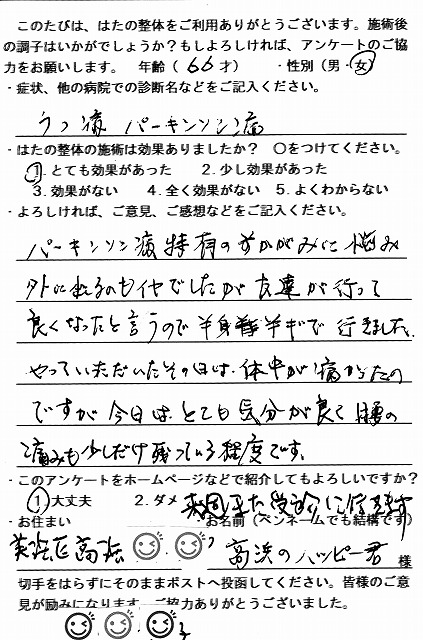 このたびは、はたの整体をご利用ありがとうございます。施術後
の調子はいかがでしょうか？もしよろしければ、アンケートのご協
力をお願いします。 年齢（ 66 才） ・性別（男・女）
・症状、他の病院での診断名などをご記入ください。
うつ病 パーキンソン病
・はたの整体の施術は効果ありましたか？ 〇をつけてください。
1.とても効果があった 2.少し効果があった
3.効果がない 4.全く効果がない 5.よくわからない
・よろしければ、ご意見、ご感想などをご記入ください。
パーキンソン病特有の前かがみに悩み
外に出るのもイヤでしたが友達が行って
良くなったと言うので半身半ギで行きました。
やっていただいたその日は、体中が痛かったの
ですが今日は、とても気分が良く腰の
痛みも少しだけ残っている程度です。
・このアンケートをホームページなどで紹介してもよろしいですか？
1.大丈夫 2.ダメ 来週また受診に行きます
・お住まい ・お名前（ペンネームでも結構です）
美浜区高浜 高浜のハッピー君 様
切手をはらずにそのままポストへ投函してください。皆様のご意
見が励みになります。ご協力ありがとうございました。